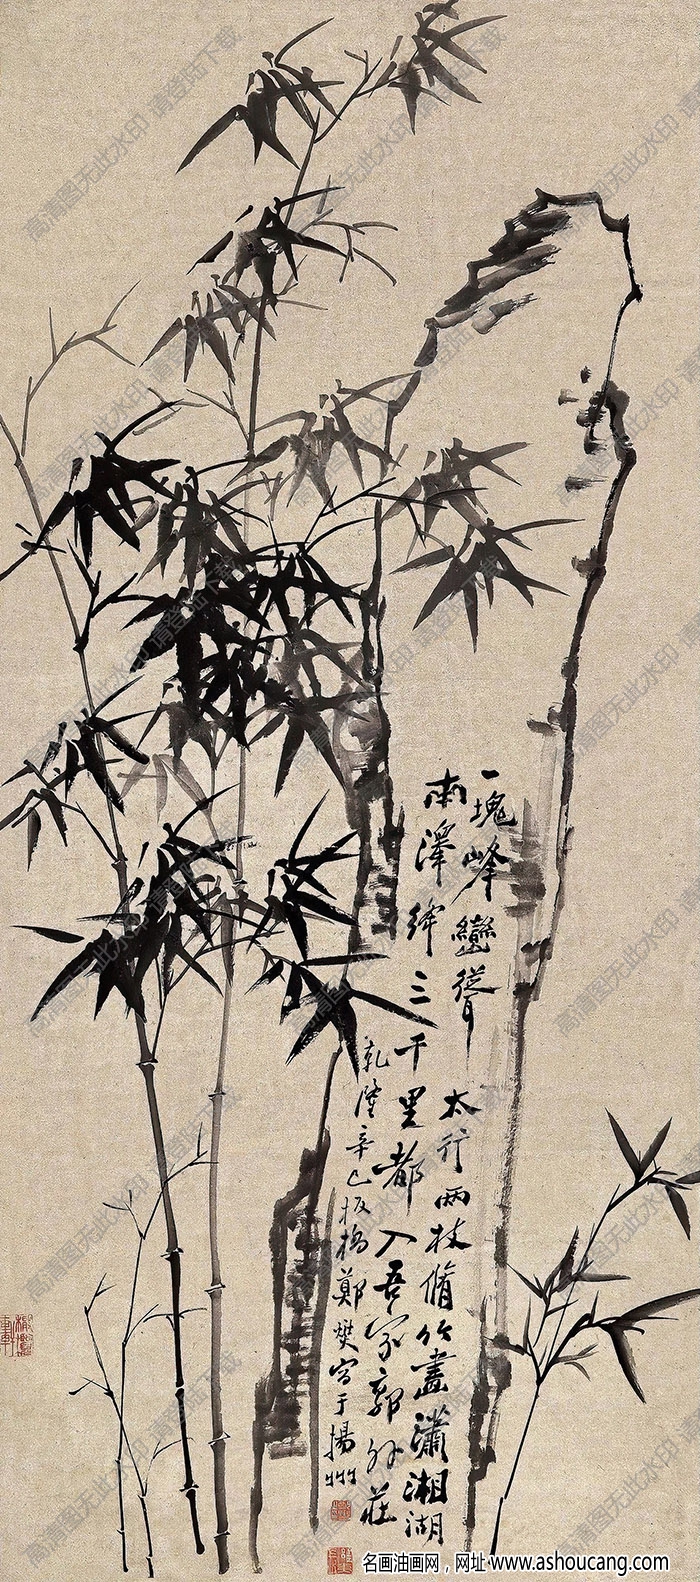 一塊峰巒聳太行兩枝脩竹畫瀟湘湖
南澤
三千里都入吾家郭外莊
乾隆辛巳板橋鄭燮寫于揚州
名画油画网，网址 www.ashoucang.com
高清图无此水印 请登陆下载